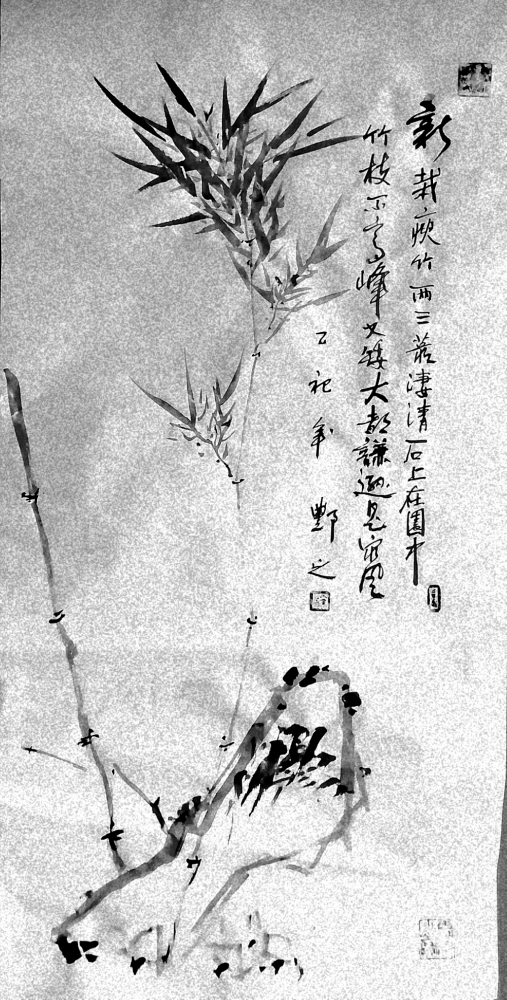 新栽瘦竹两三丛淒清一石上在園中
竹枝不高峰又矮大都謙遜是家風
乙祀年 酆之